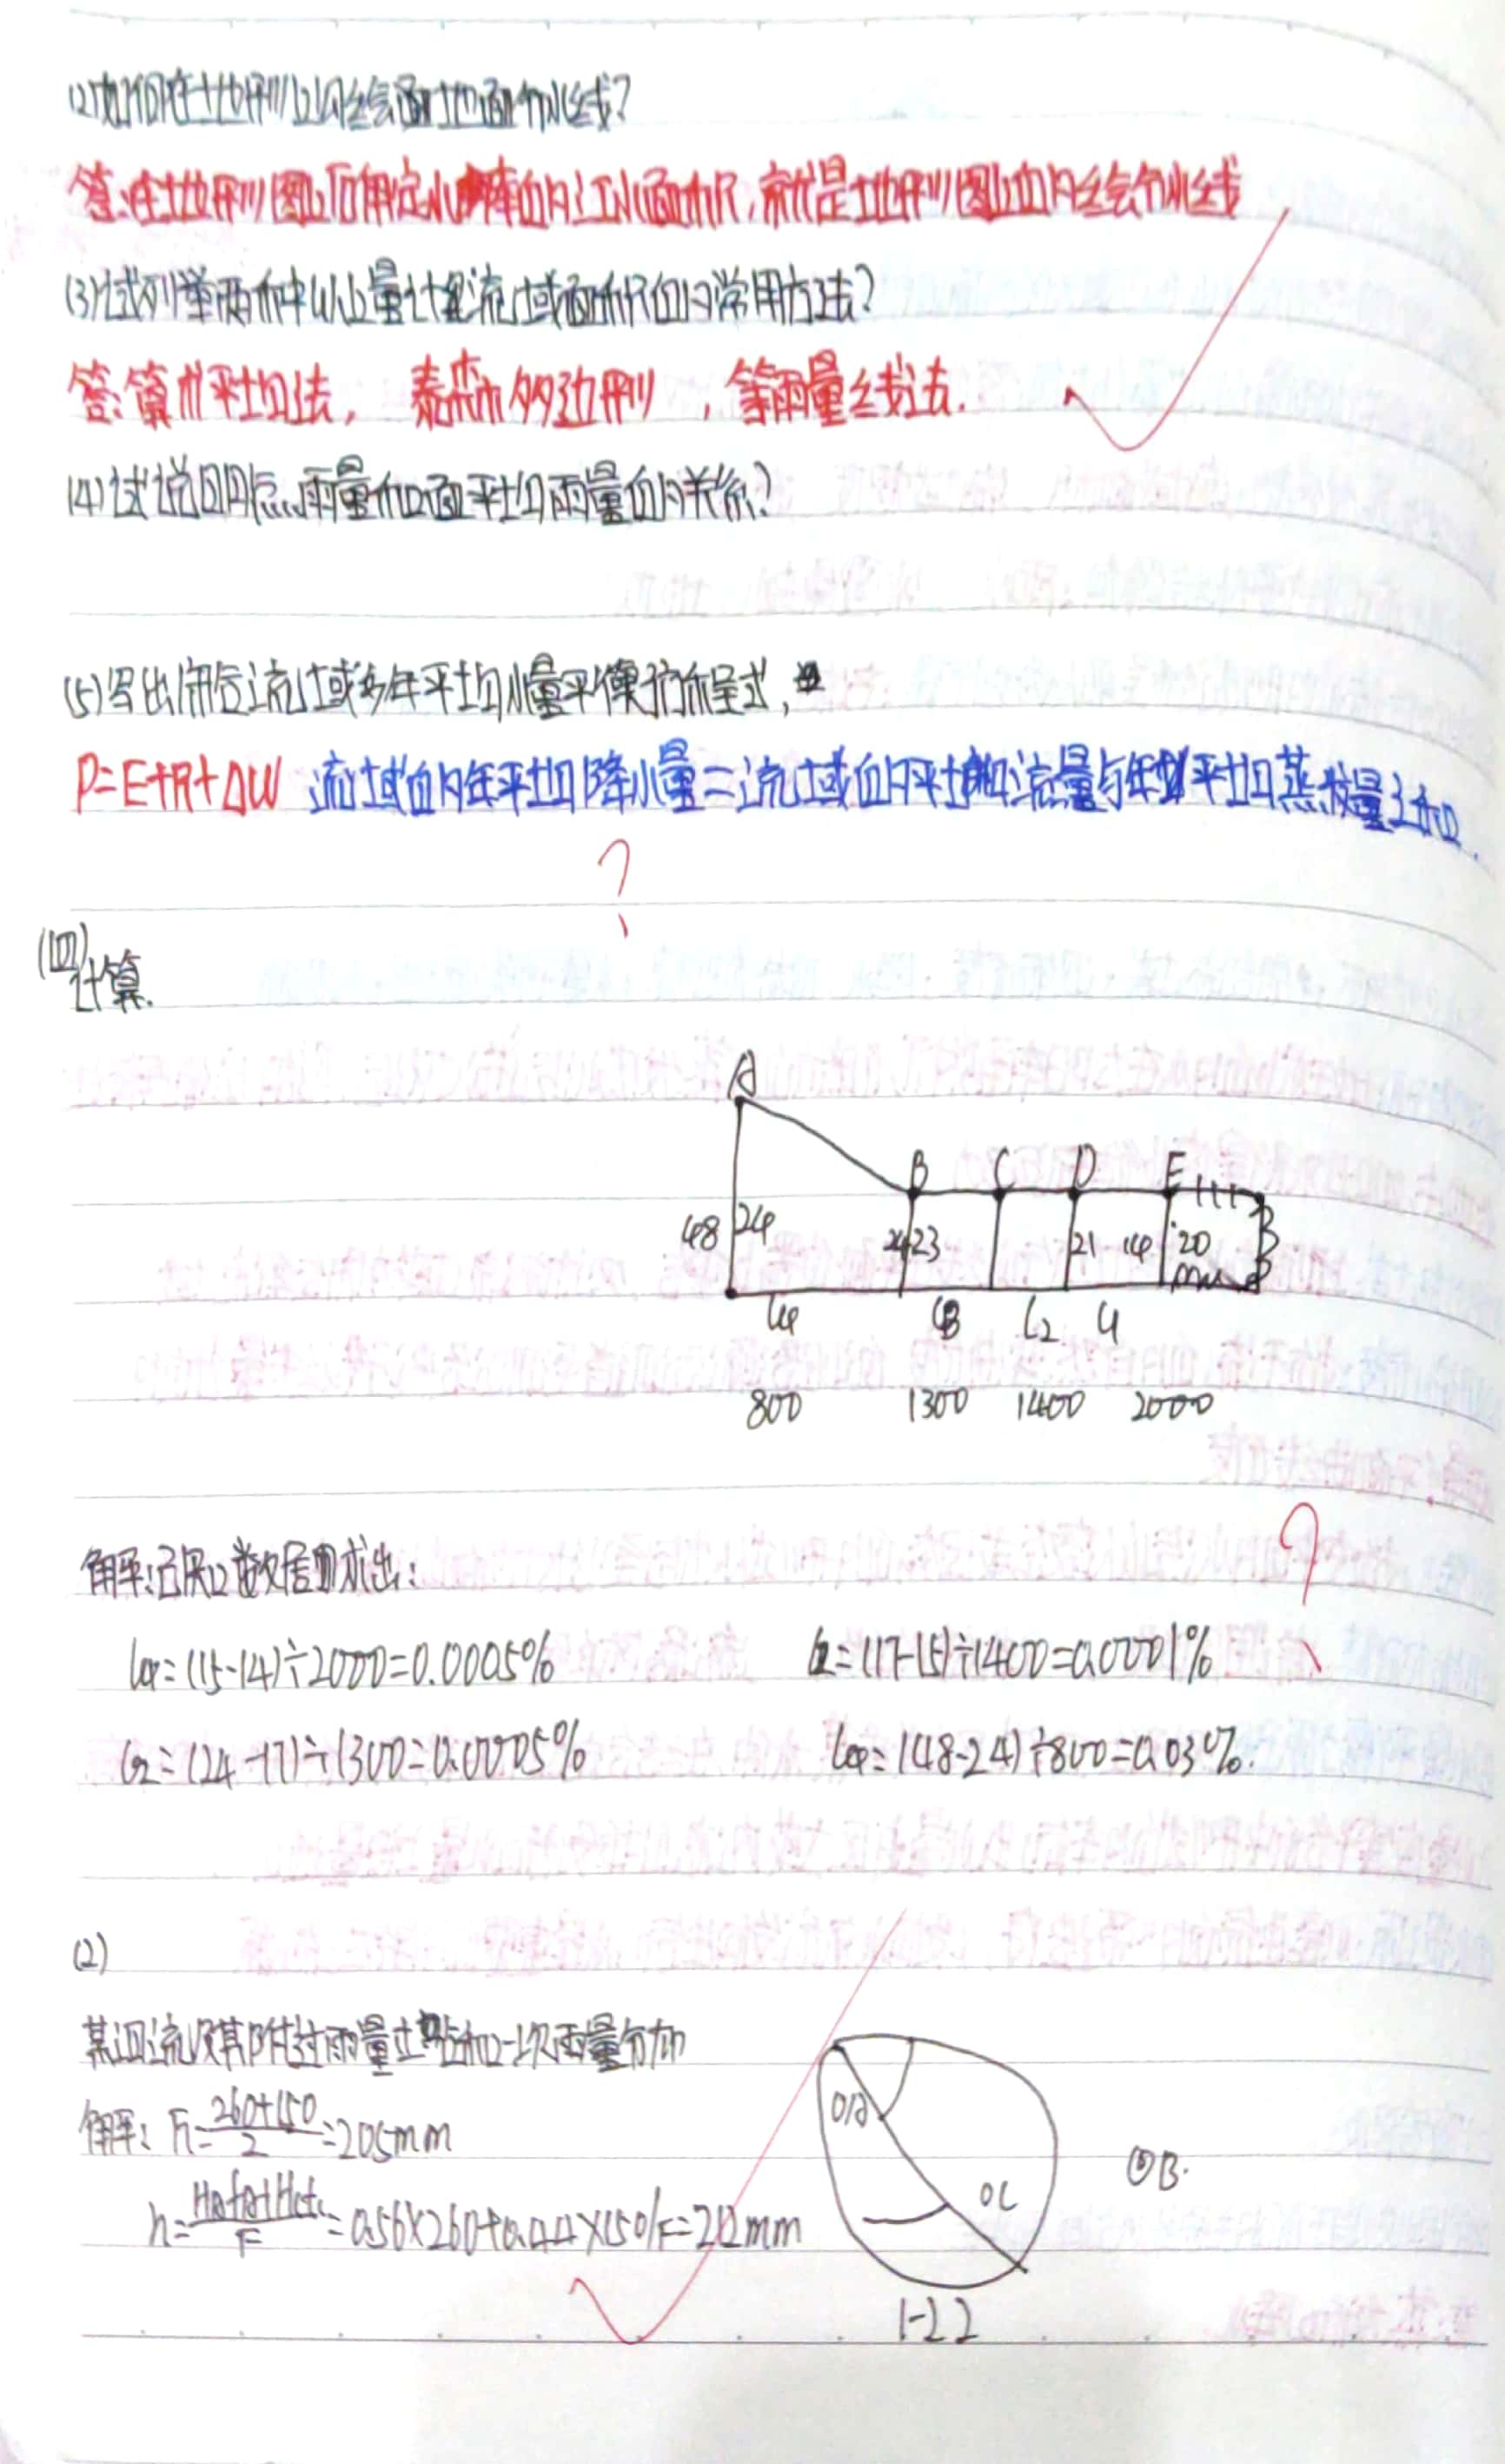 (2)如何在地形上勾绘画地面分水线?
答:在地形图上后用定水准的江水面, 就是地形图上的绘分水线
(3)试列举两种以上量计算流域面积的常用方法?
答:算术平均法, 泰森多边形, 等雨量线法.
(4)试说明点雨量和面平均雨量的关系?
(5)写出闭合流域多年平均水量平衡方程式,
P=E+R+ΔW 流域的年平均降水量=流域的平均流量与年平均蒸发量之和.
?
(四)计算.
A
B C D E
48 24 24 23 21 14 20
L4 L3 L2 L1
800 1300 1400 2000
?
解:已知数据求出:
=(15-14)÷2000=0.0005% =(17-15)÷1400=0.0001%
L2=(24-17)÷1300=0.0005% =(48-24)÷800=0.03%.
(2)
某河流及其附近雨量站和一次雨量分布
解: h=260+150/2=205mm
OA
OB.
OC
h=HAfA+Hcfc/F=0.56×260+0.44×150/F=212mm
1-22